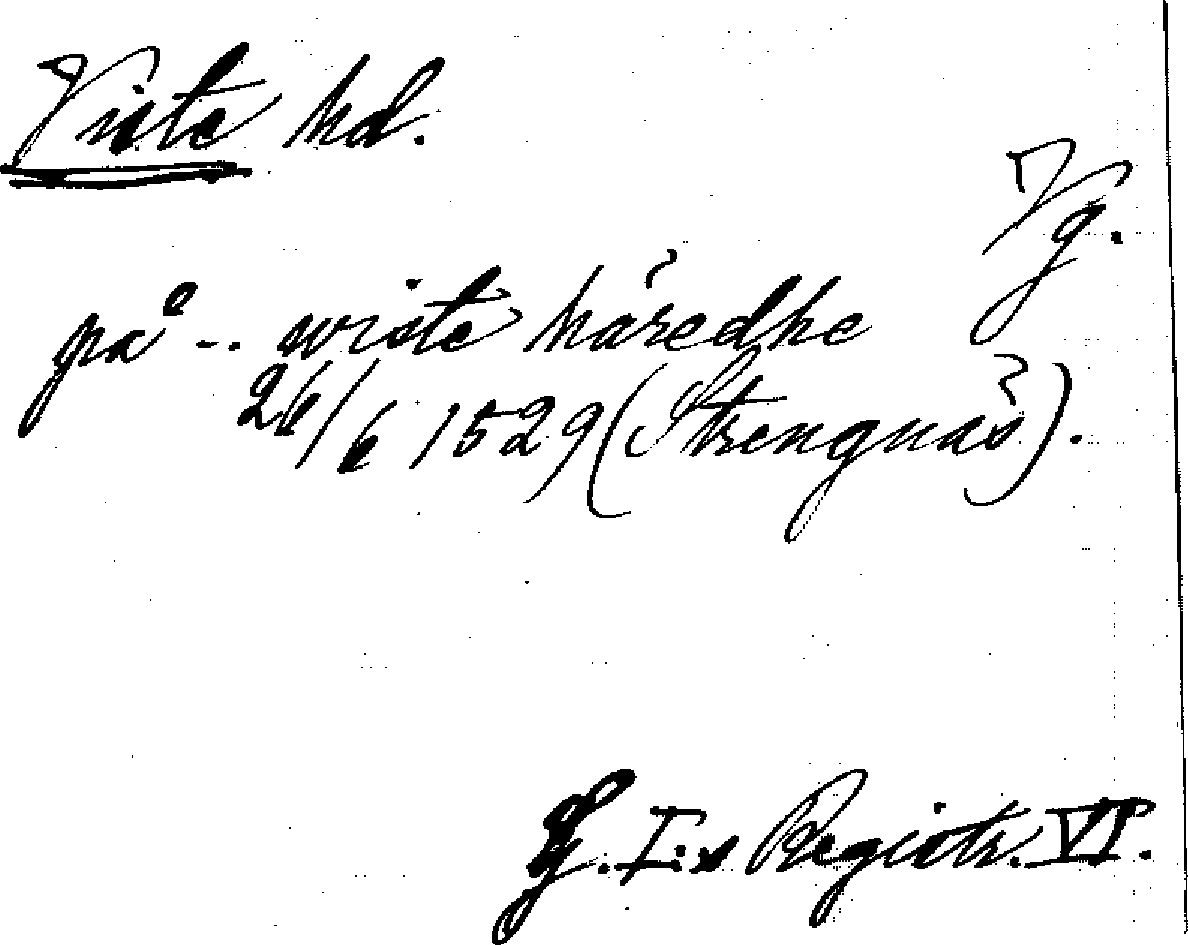 Viste hd.
Vg.
på -- wiste häredhe
26/6 1529 (Strengnäs).
G. I:s Registr. VI.